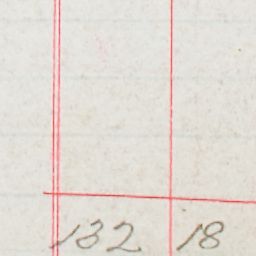 132 18